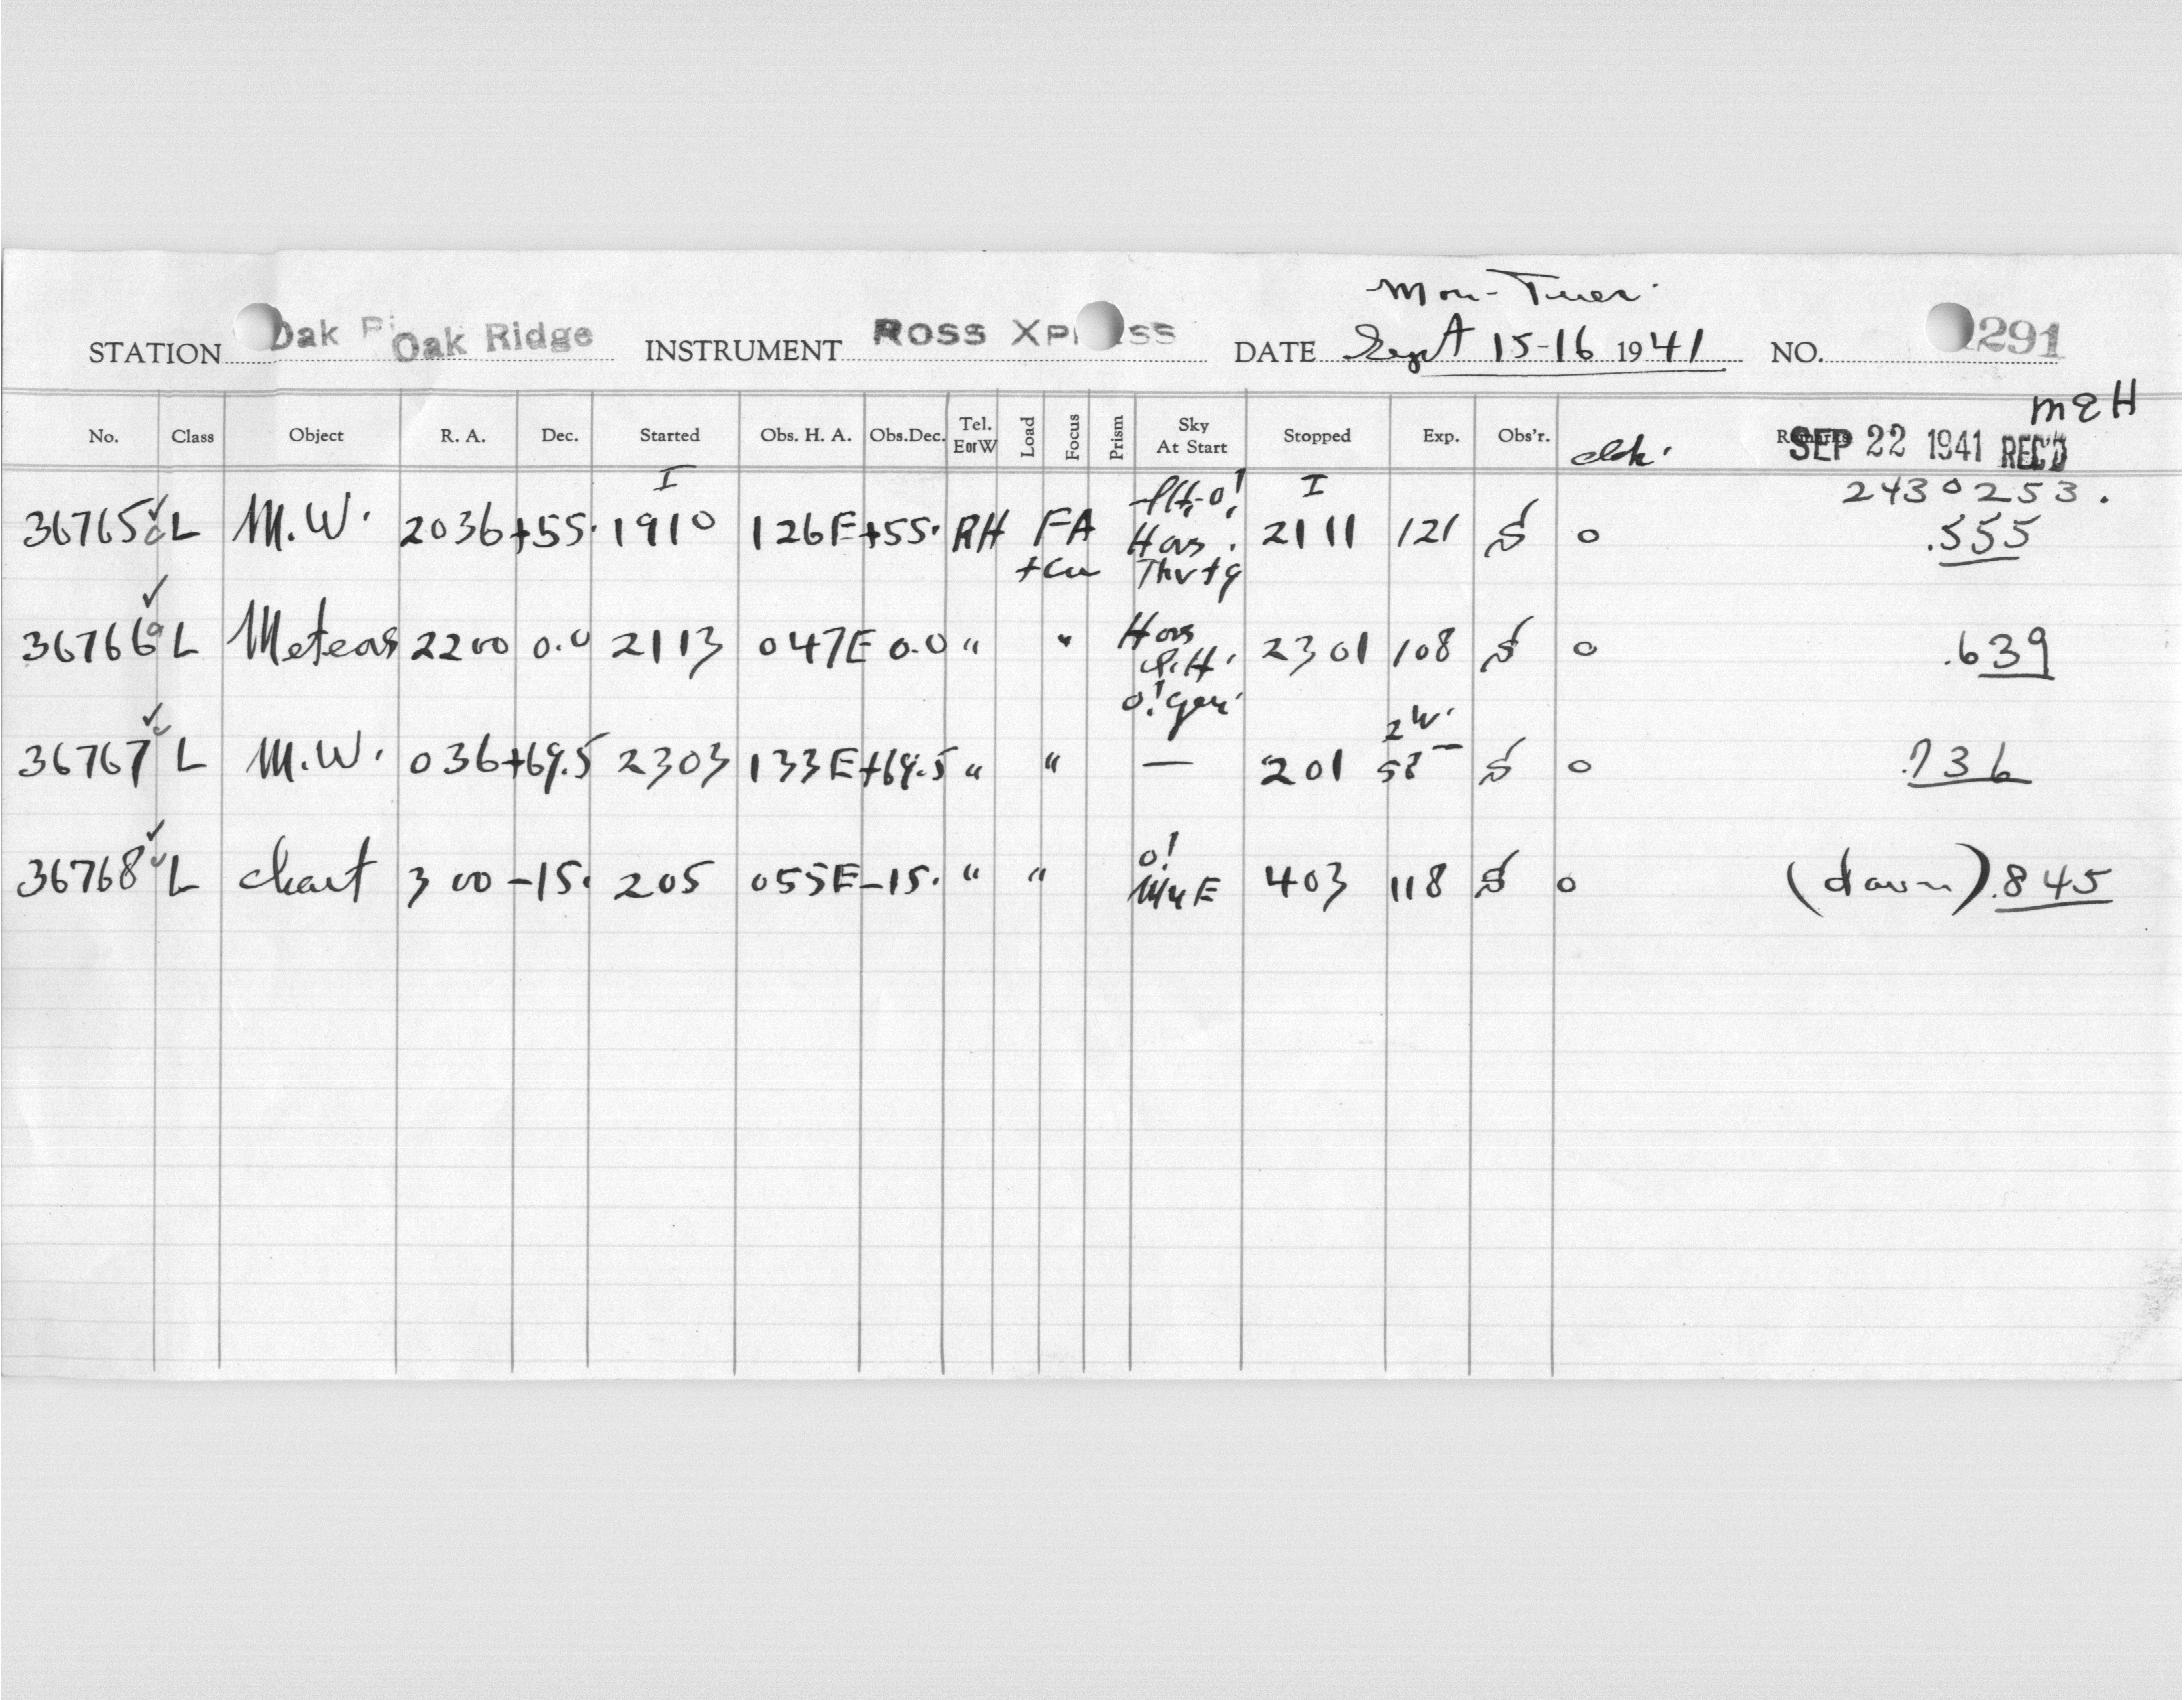 Mon-Tues.
STATION Oak Ridge INSTRUMENT ROSS XP SS DATE Sept 15-16 1941 NO. 291
MEH
No. Class Object R. A. Dec. Started Obs. H. A. Obs.Dec. Tel. E or W Load Focus Prism Sky At Start Stopped Exp. Obs'r. clck. Remarks
SEP 22 1941 REC'D
I I 2430253.
36765 L M.W. 2036 +55. 1910 126E +55. RH FA +Cu Havs. 2111 121 S o .555
36766 L Meteors 2200 0.0 2113 047E 0.0 " " Havs 2301 108 S o .639
36767 L M.W. 036 +69.5 2303 133E +69.5 " " — 201 2 58 S o .736
36768 L chart 300 -15. 205 055E -15. " " o! E 403 118 S o (dawn) .845